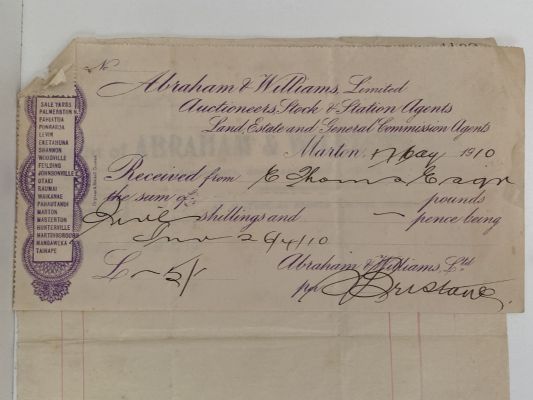 No
Abraham & Williams, Limited
Auctioneers, Stock & Station Agents
Land, Estate and General Commission Agents
Marton, May 1910
Received from E Thoms Esqr
the sum of £ pounds
five shillings and — pence being
Inv 26/4/10
£ - 5/
Abraham & Williams, Ltd
SALE YARDS
PALMERSTON N.
PAPUITOA
PONGAROA
LEVIN
EKETAHUNA
SHANNON
WOODVILLE
FEILDING
JOHNSONVILLE
OTAKI
RAUMAI
WAIKANAE
PAHAUTANUI
MARTON
MASTERTON
HUNTERVILLE
MARTINBOROUGH
MANGAWEKA
TAIHAPE